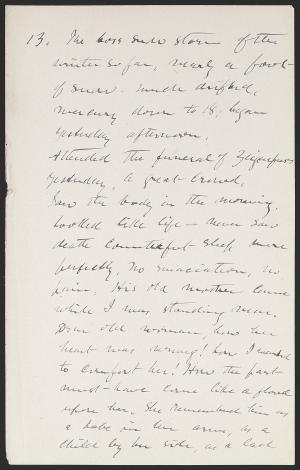 13. The boss snow storm of the
winter so far, nearly a foot
of snow. much drifted,
mercury down to 18; began
yesterday afternoon.
Attended the funeral of
yesterday, a great crowd.
Saw the body in the morning,
looked like life - never saw
death counterfeit sleep more
perfectly, no emaciation, no
pain. His old mother came
while I was standing near.
Dear old woman, how her
heart was wrung! how I wanted
to comfort her! How the past
must have come like a flood
upon her. She remembered him as
a babe in her arms, as a
child by her side, as a lad